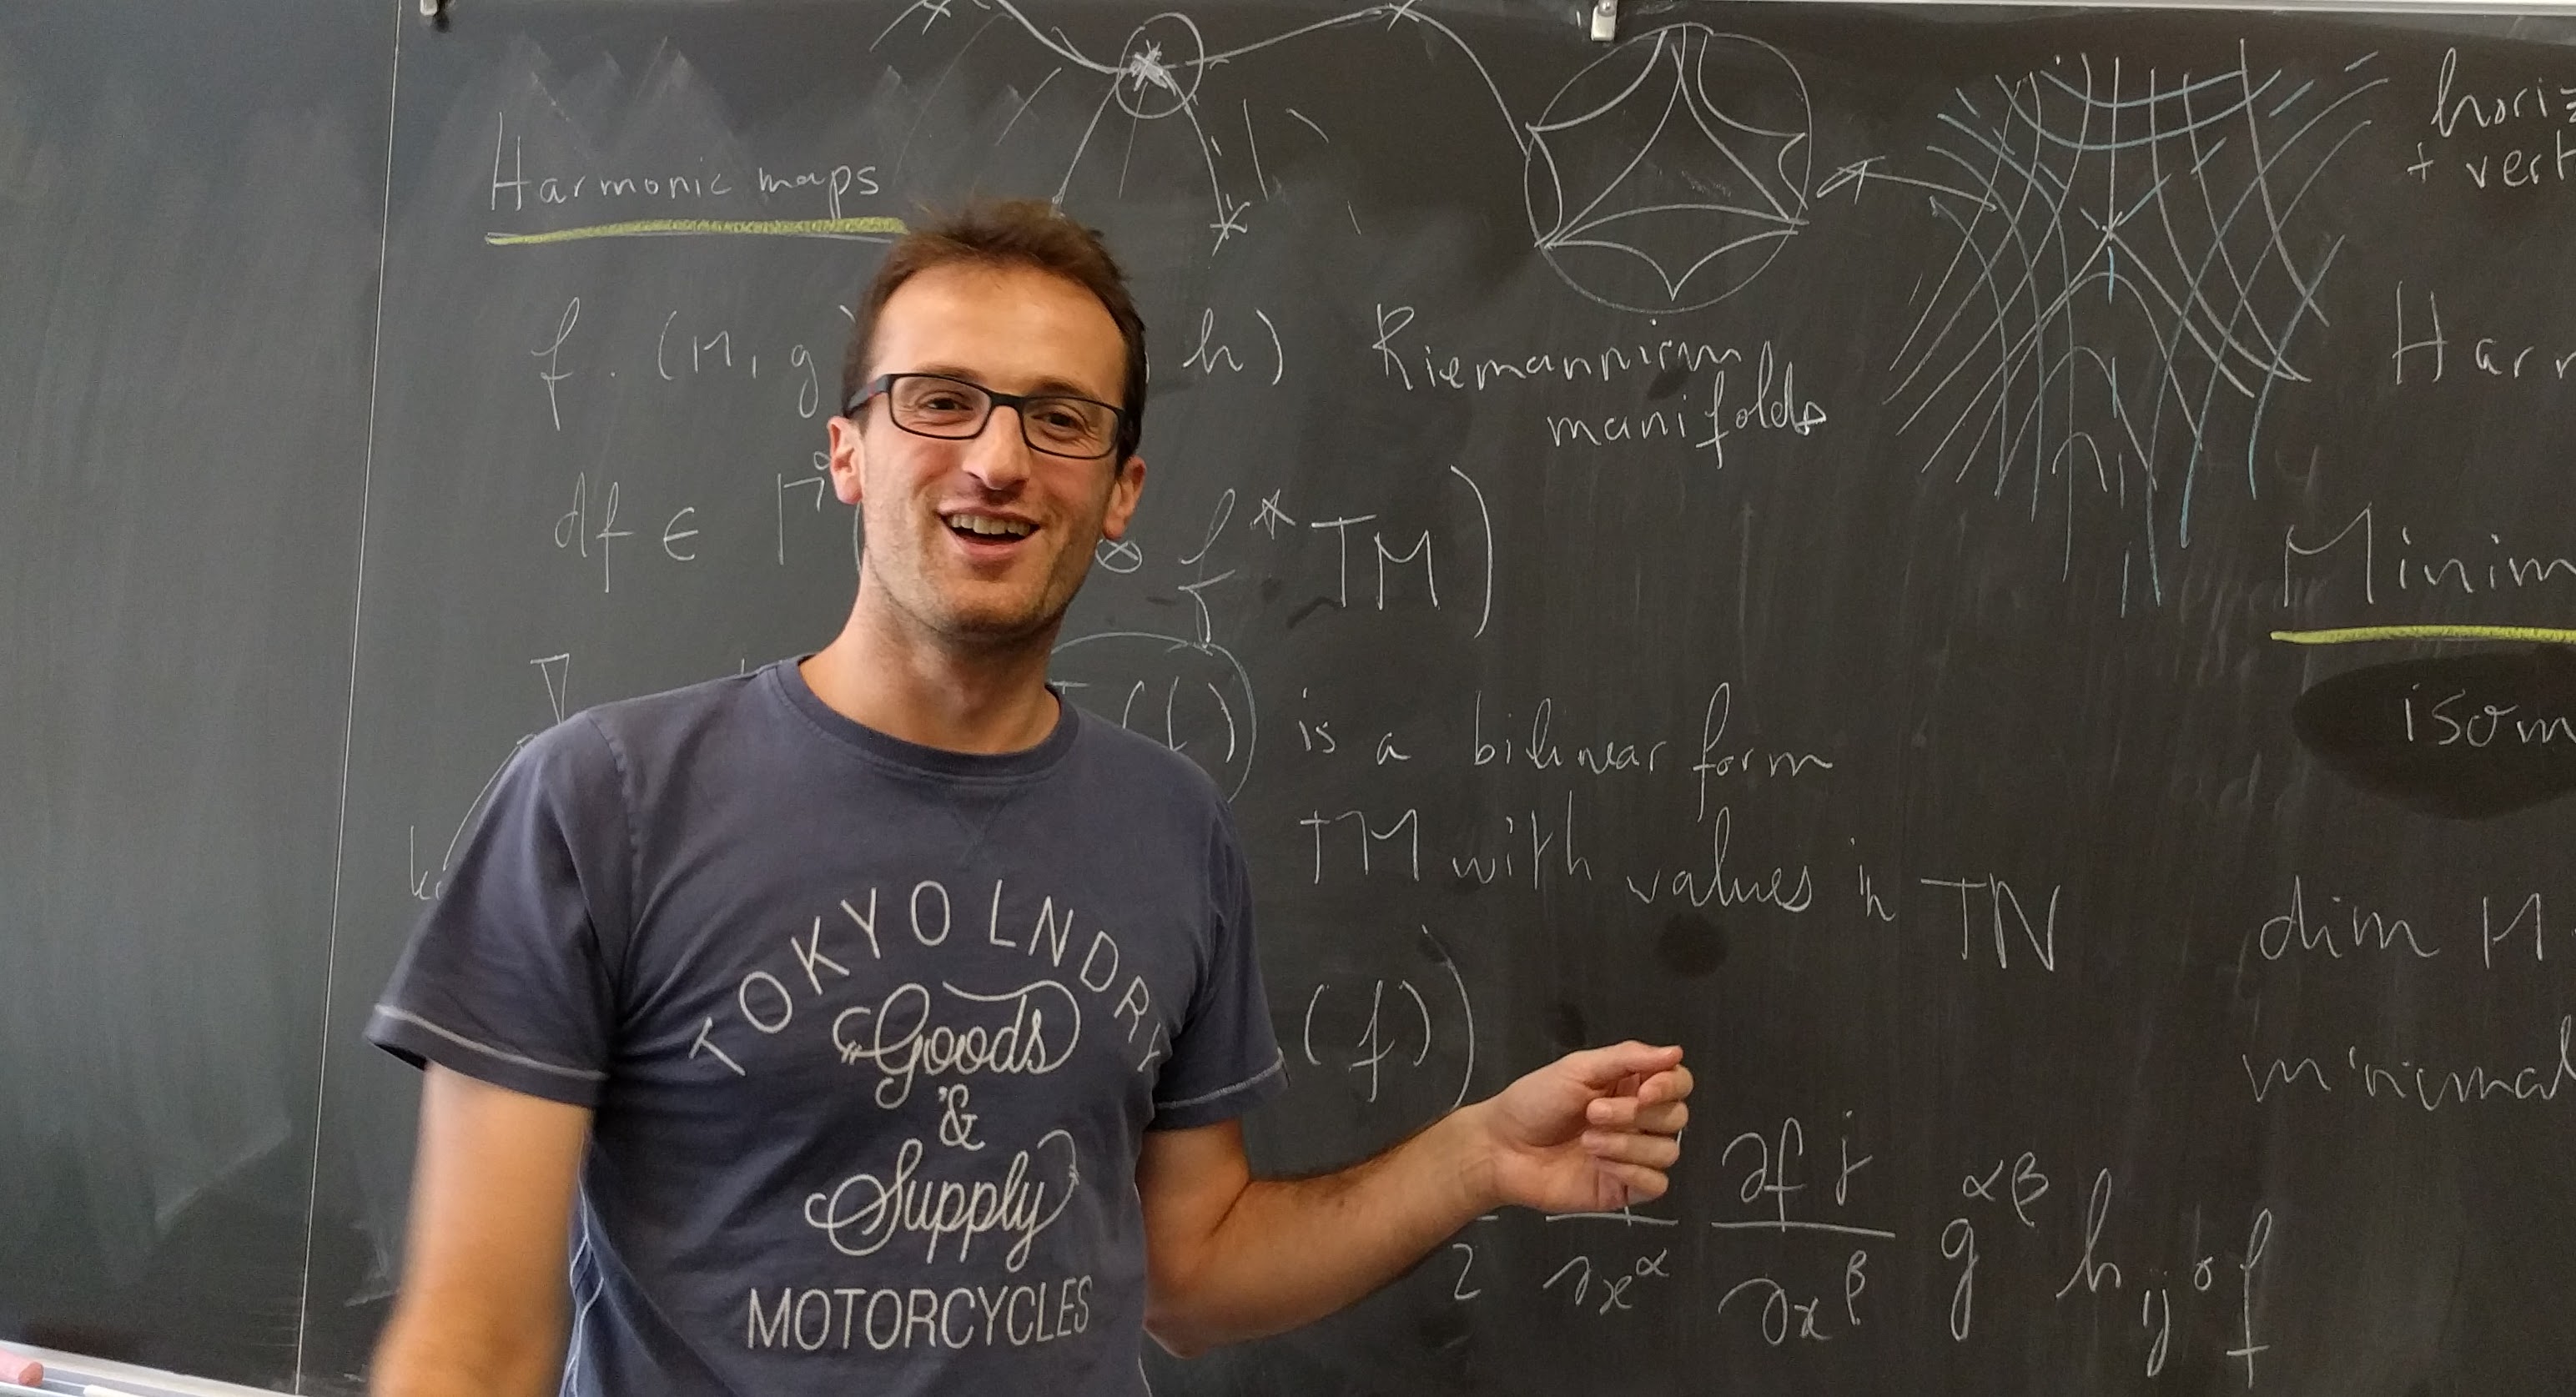 Harmonic maps
f . (M, g) h) Riemannian
manifolds
df ∈ Γ ⊗ f*TM)
∇ (f) is a bilinear form
TM with values in TN
(f))
2 ∂x^α ∂f^j ∂x^β g^αβ h_ij ∘ f
horiz
+ vert
Harm
Minim
isom
dim M
minimal
TOKYO LNDRY
Goods
&
Supply
MOTORCYCLES